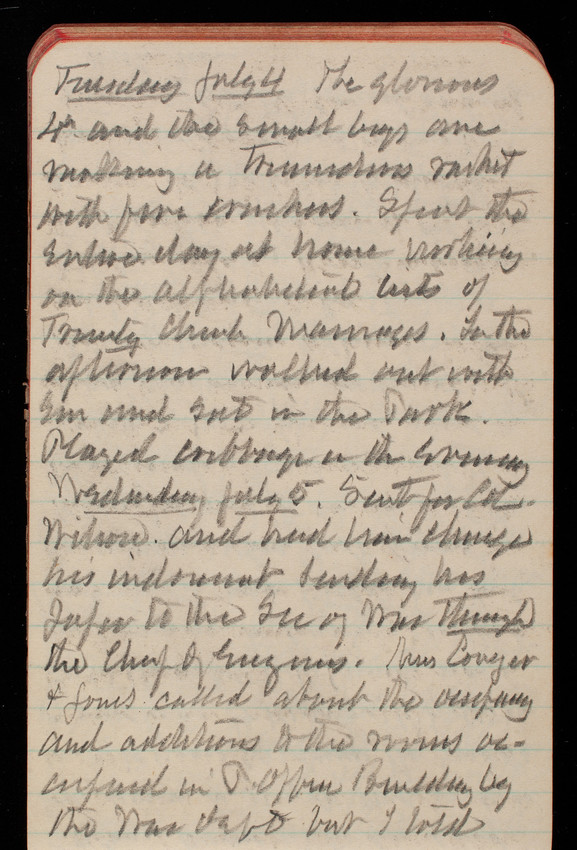 Tuesday July 4 The glorious
4th and the small boys are
making a tremendous racket
with fire crackers. Spent the
entire day at home working
on the alphabetical lists of
Trinity Church Marriages. In the
afternoon walked out with
Em and sat in the Park.
Played cribbage in the evening
Wednesday July 5. Sent for Col.
Wilson. and had him change
his indorsement sending his
paper to the Sec of War through
the Chief of Engineers. Conger
& Jones called about the
and additions to the rooms oc-
cupied in P. Office Building by
the War Dept but I told